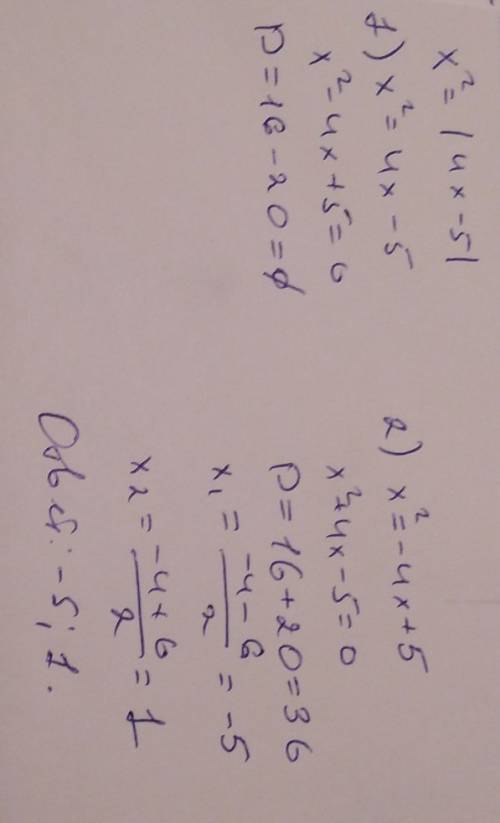 x² = |4x-5|
1) x² = 4x - 5
x² - 4x + 5 = 0
D = 16 - 20 = ∅
2) x² = -4x + 5
x² + 4x - 5 = 0
D = 16 + 20 = 36
x₁ = (-4 - 6)/2 = -5
x₂ = (-4 + 6)/2 = 1
Ответ: -5; 1.